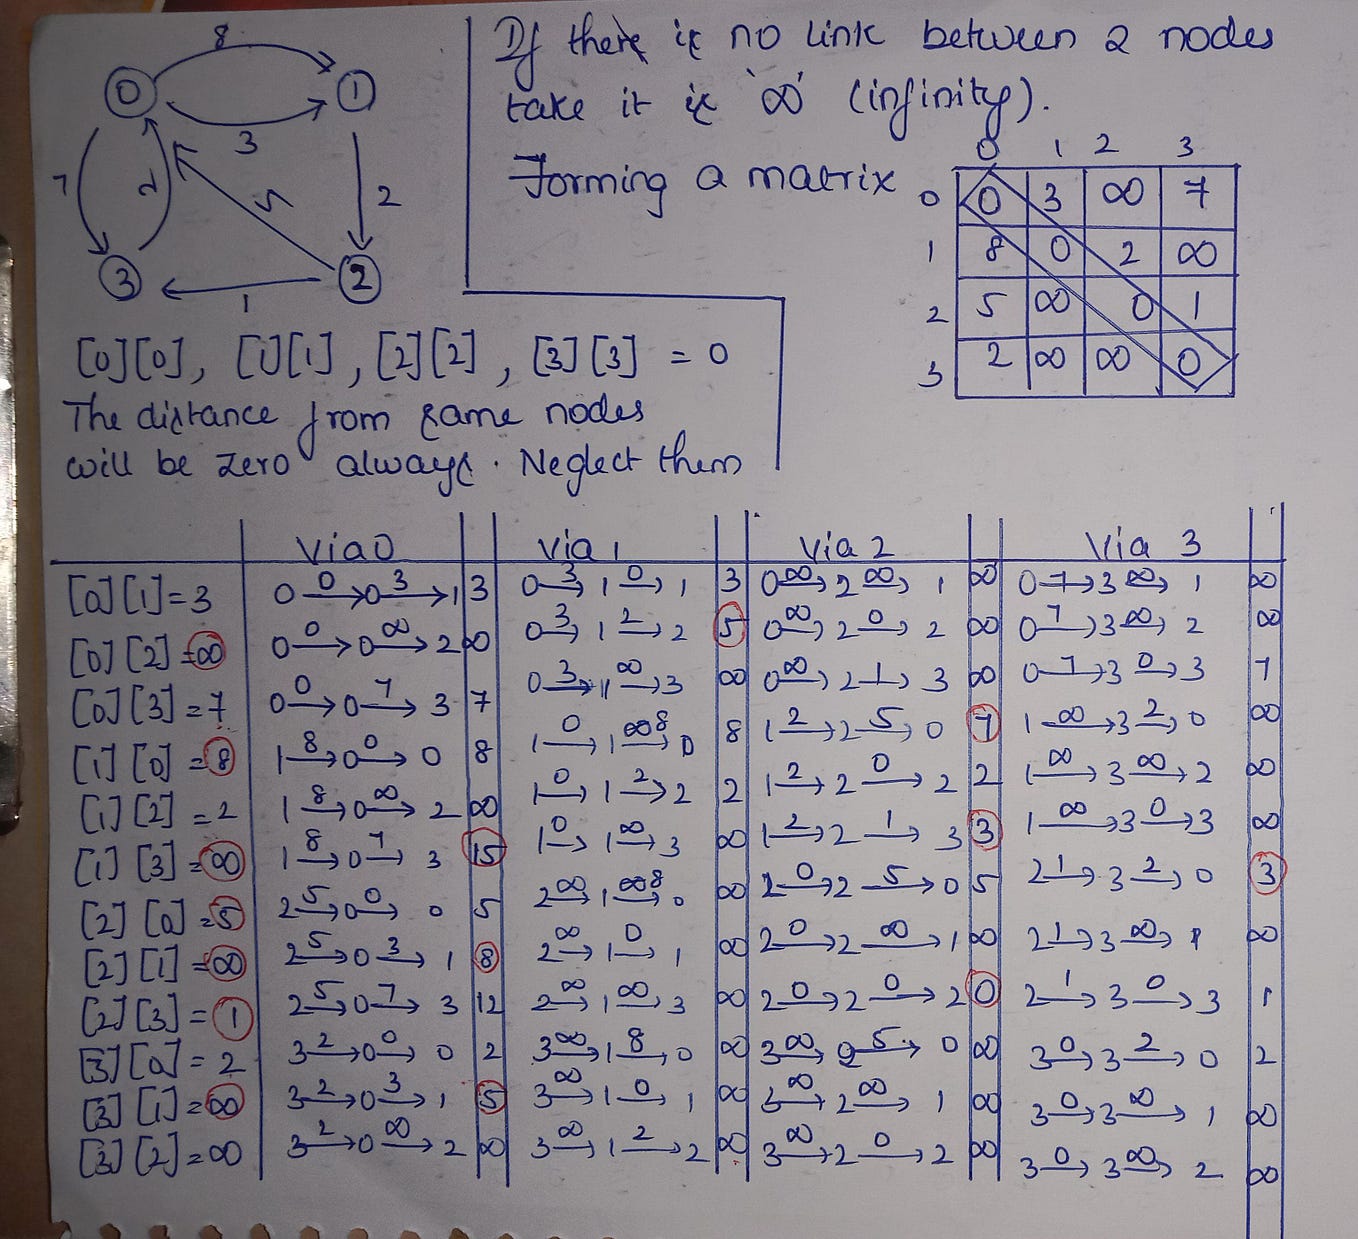 If there is no link between 2 nodes
take it is '∞' (infinity).
Forming a matrix
0 1 2 3
0 0 3 ∞ 7
1 8 0 2 ∞
2 5 ∞ 0 1
3 2 ∞ ∞ 0
8
0 1
3
7 2 5 2
3 2
1
[0][0], [1][1], [2][2], [3][3] = 0
The distance from same nodes
will be zero always. Neglect them
Via 0 Via 1 Via 2 Via 3
[0][1]=3 0 -0-> 0 -3-> 1 3 0 -3-> 1 -0-> 1 3 0 -∞-> 2 -∞-> 1 ∞ 0 -7-> 3 -∞-> 1 ∞
[0][2]=∞ 0 -0-> 0 -∞-> 2 ∞ 0 -3-> 1 -2-> 2 5 0 -∞-> 2 -0-> 2 ∞ 0 -7-> 3 -∞-> 2 ∞
[0][3]=7 0 -0-> 0 -7-> 3 7 0 -3-> 1 -∞-> 3 ∞ 0 -∞-> 2 -1-> 3 ∞ 0 -7-> 3 -0-> 3 7
[1][0]=8 1 -8-> 0 -0-> 0 8 1 -0-> 1 -∞8-> 0 8 1 -2-> 2 -5-> 0 7 1 -∞-> 3 -2-> 0 ∞
[1][2]=2 1 -8-> 0 -∞-> 2 ∞ 1 -0-> 1 -2-> 2 2 1 -2-> 2 -0-> 2 2 1 -∞-> 3 -∞-> 2 ∞
[1][3]=∞ 1 -8-> 0 -7-> 3 15 1 -0-> 1 -∞-> 3 ∞ 1 -2-> 2 -1-> 3 3 1 -∞-> 3 -0-> 3 ∞
[2][0]=5 2 -5-> 0 -0-> 0 5 2 -∞-> 1 -∞8-> 0 ∞ 2 -0-> 2 -5-> 0 5 2 -1-> 3 -2-> 0 3
[2][1]=∞ 2 -5-> 0 -3-> 1 8 2 -∞-> 1 -0-> 1 ∞ 2 -0-> 2 -∞-> 1 ∞ 2 -1-> 3 -∞-> 1 ∞
[2][3]=1 2 -5-> 0 -7-> 3 12 2 -∞-> 1 -∞-> 3 ∞ 2 -0-> 2 -0-> 2 0 2 -1-> 3 -0-> 3 1
[3][0]=2 3 -2-> 0 -0-> 0 2 3 -∞-> 1 -8-> 0 ∞ 3 -∞-> 2 -5-> 0 ∞ 3 -0-> 3 -2-> 0 2
[3][1]=∞ 3 -2-> 0 -3-> 1 5 3 -∞-> 1 -0-> 1 ∞ 3 -∞-> 2 -∞-> 1 ∞ 3 -0-> 3 -∞-> 1 ∞
[3][2]=∞ 3 -2-> 0 -∞-> 2 ∞ 3 -∞-> 1 -2-> 2 ∞ 3 -∞-> 2 -0-> 2 ∞ 3 -0-> 3 -∞-> 2 ∞